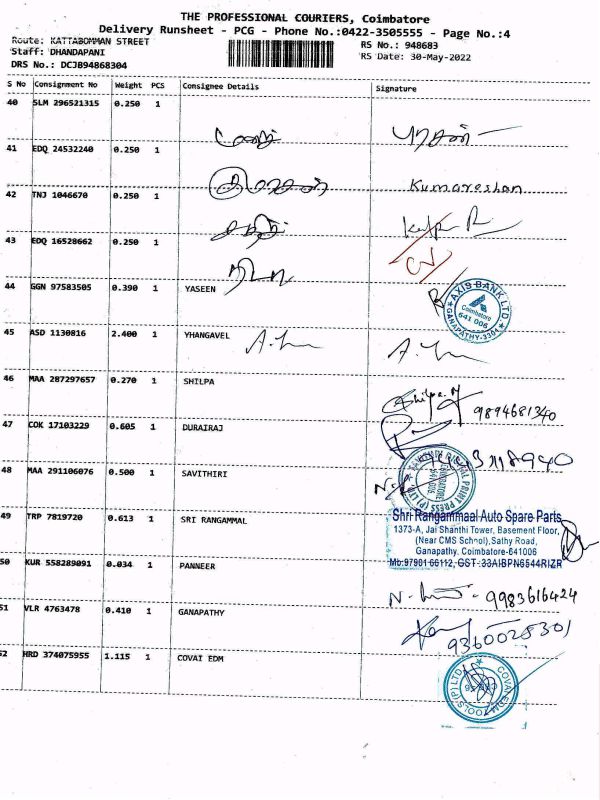 THE PROFESSIONAL COURIERS, Coimbatore
Delivery Runsheet - PCG - Phone No.:0422-3505555 - Page No.:4
Route: KATTABOMMAN STREET
RS No.: 948683
Staff: DHANDAPANI
RS Date: 30-May-2022
DRS No.: DCJB94868304
S No Consignment No Weight PCS Consignee Details Signature
40 SLM 296521315 0.250 1
41 EDQ 24532240 0.250 1
Kumareshan
42 TNJ 1046670 0.250 1
43 EDQ 16528662 0.250 1
44 GGN 97583505 0.390 1 YASEEN
AXIS BANK LTD
Coimbatore
641 006
GANAPATHY-3304
45 ASD 1130816 2.400 1 YHANGAVEL
46 MAA 287297657 0.270 1 SHILPA
Shilpa.M 9894681340
47 COK 17103229 0.605 1 DURAIRAJ
48 MAA 291106076 0.500 1 SAVITHIRI
49 TRP 7819720 0.613 1 SRI RANGAMMAL
Shri Rangammaal Auto Spare Parts
1373-A, Jai Shanthi Tower, Basement Floor,
(Near CMS School), Sathy Road,
Ganapathy, Coimbatore-641006
Mb:97901 66112, GST:33AIBPN6544RIZR
50 KUR 558289091 0.034 1 PANNEER
9983616424
51 VLR 4763478 0.410 1 GANAPATHY
9360028301
52 HRD 374075955 1.115 1 COVAI EDM
COVAI EDM TOOLS (P) LTD